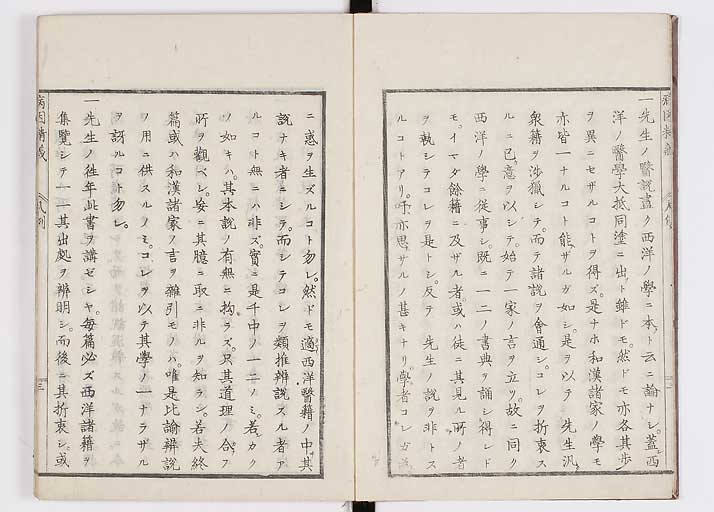 一先生ノ醫説盡ク西洋ノ學ニ本ト云ニ論ナシ。蓋西
洋ノ醫學大抵同塗ニ出ト雖ドモ。然ドモ亦各其歩
ヲ異ニセザルコトヲ得ズ。是ナホ和漢諸家ノ學モ
亦皆一ナルコト能ザルガ如シ。是ヲ以テ 先生汎
衆籍ヲ渉獵シテ。而テ諸説ヲ會通シ。コレヲ折衷ス
ルニ已。意ヲ以シテ始テ一家ノ言ヲ立ツ。故ニ同ク
西洋ノ學ニ從事シ。既ニ一二ノ書典ヲ誦シ得レド
モ。イマダ餘籍ニ及ザル者。或ハ徒ニ其見ル所ノ者
ヲ執シテコレヲ是トシ。反テ 先生ノ説ヲ非トス
ルコトアリ。吁亦思ザルノ甚キナリ。學者コレガ
ニ惑ヲ生ズルコト勿レ。然ドモ適西洋醫籍ノ中其
説ナキ者ニシテ。而シテコレヲ類推辨説スル者ア
ルコト無ニハ非ズ。實ニ是千中ノ一二ノミ。若カク
ノ如キハ。其本説ノ有無ニ拘ラズ。只其道理ノ合フ
所ヲ觀ベシ。妄ニ其臆ニ取ニ非ルヲ知ラン。若夫終
篇或ハ和漢諸家ノ言ヲ雜引モノハ。唯是比論辨説
ヲ用ニ供スルノミ。コレヲ以テ其學ノ一ナラザル
ヲ訝ルコト勿レ。
一先生ノ徃年此書ヲ講ゼシヤ。毎篇必ズ西洋諸籍ヲ
集覽シテ一一其出処ヲ辨明シ。而後ニ其折衷シ。或
病因精義
凡例
三